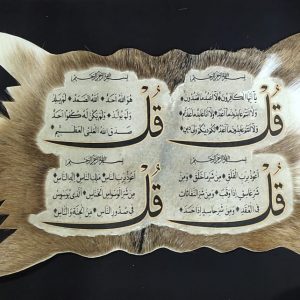 بسم الله الرحمن الرحيم
قل
يا أيها الكافرون لا أعبد ما تعبدون
ولا أنتم عابدون ما أعبد ولا أنا عابد ما عبدتم
ولا أنتم عابدون ما أعبد لكم دينكم ولي دين
بسم الله الرحمن الرحيم
قل
هو الله أحد الله الصمد لم يلد
ولم يولد ولم يكن له كفوا أحد
صدق الله العلي العظيم
بسم الله الرحمن الرحيم
قل
أعوذ برب الفلق من شر ما خلق ومن
شر غاسق إذا وقب ومن شر النفاثات
في العقد ومن شر حاسد إذا حسد
بسم الله الرحمن الرحيم
قل
أعوذ برب الناس ملك الناس إله الناس
من شر الوسواس الخناس الذي يوسوس
في صدور الناس من الجنة والناس